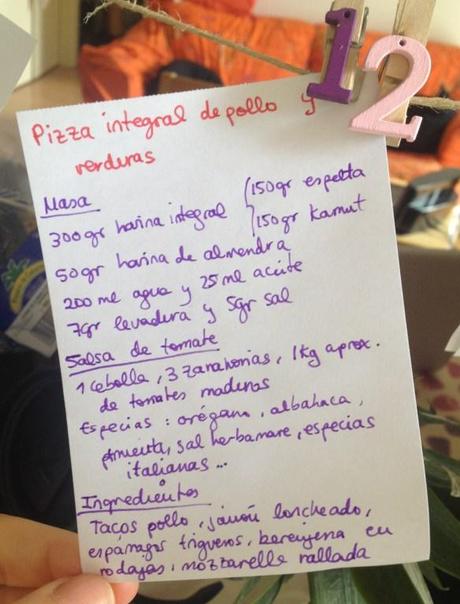 12
Pizza integral de pollo y
verduras
Masa
300gr harina integral (150gr espelta
150gr kamut
50gr harina de almendra
200 ml agua y 25 ml aceite
7gr levadura y 5gr sal
Salsa de tomate
1 cebolla, 3 zanahorias, 1kg aprox.
de tomates maduras
Especias : orégano, albahaca,
pimienta, sal herbamare, especias
italianas ...
Ingredientes
Tacos pollo, jamón loncheado,
espárragos trigueros, berenjena en
rodajas, mozzarelle rallada